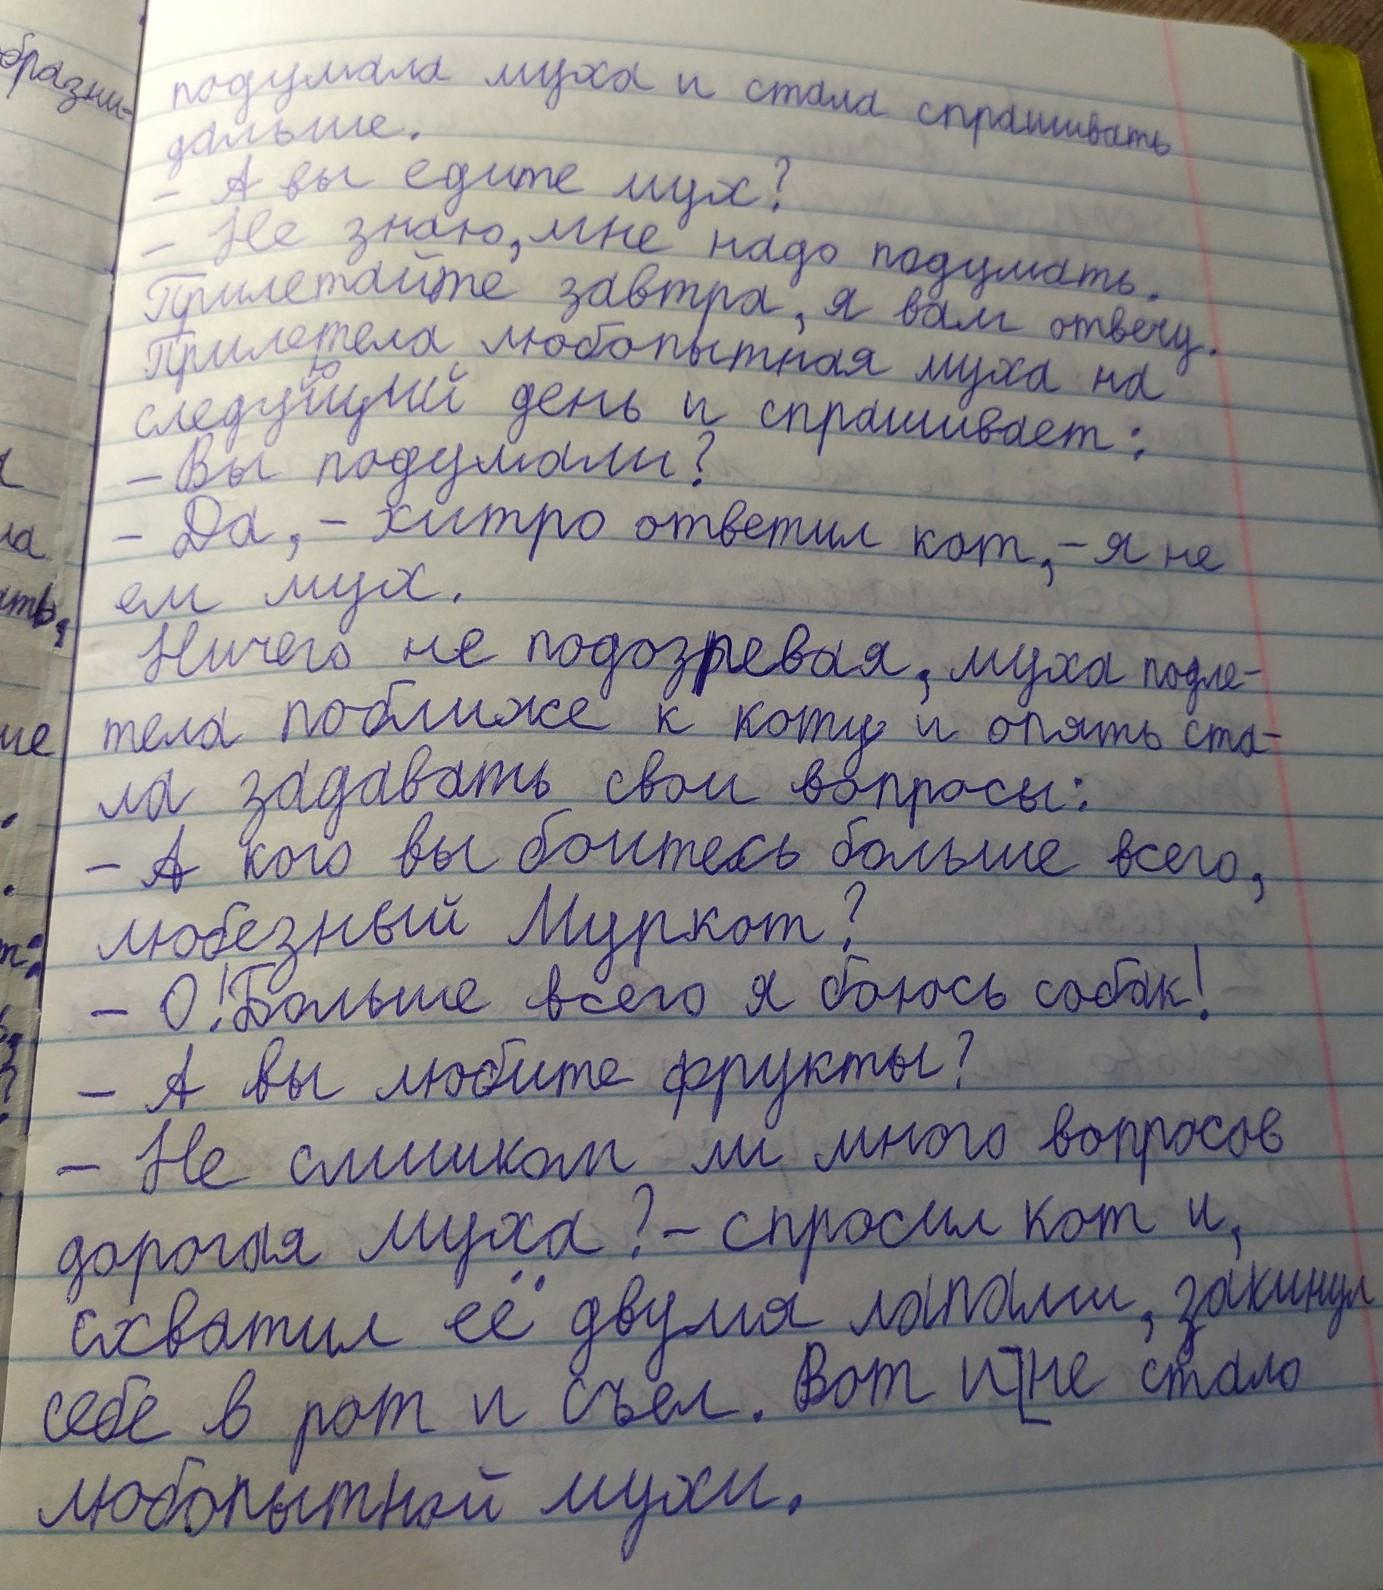 образни-
подумала муха и стала спрашивать
дальше.
- А вы едите мух?
- Не знаю, мне надо подумать.
Прилетайте завтра, я вам отвечу.
Прилетела любопытная муха на
следующий день и спрашивает:
- Вы подумали?
- Да, - хитро ответил кот, - я не
ем мух.
Ничего не подозревая, муха подле-
тела поближе к коту и опять ста-
ла задавать свои вопросы:
- А кого вы боитесь больше всего,
любезный Муркот?
- О! Больше всего я боюсь собак!
- А вы любите фрукты?
- Не слишком ли много вопросов
дорогая муха? - спросил кот и,
схватил её двумя лапами, закинул
себе в рот и съел. Вот и не стало
любопытной мухи.